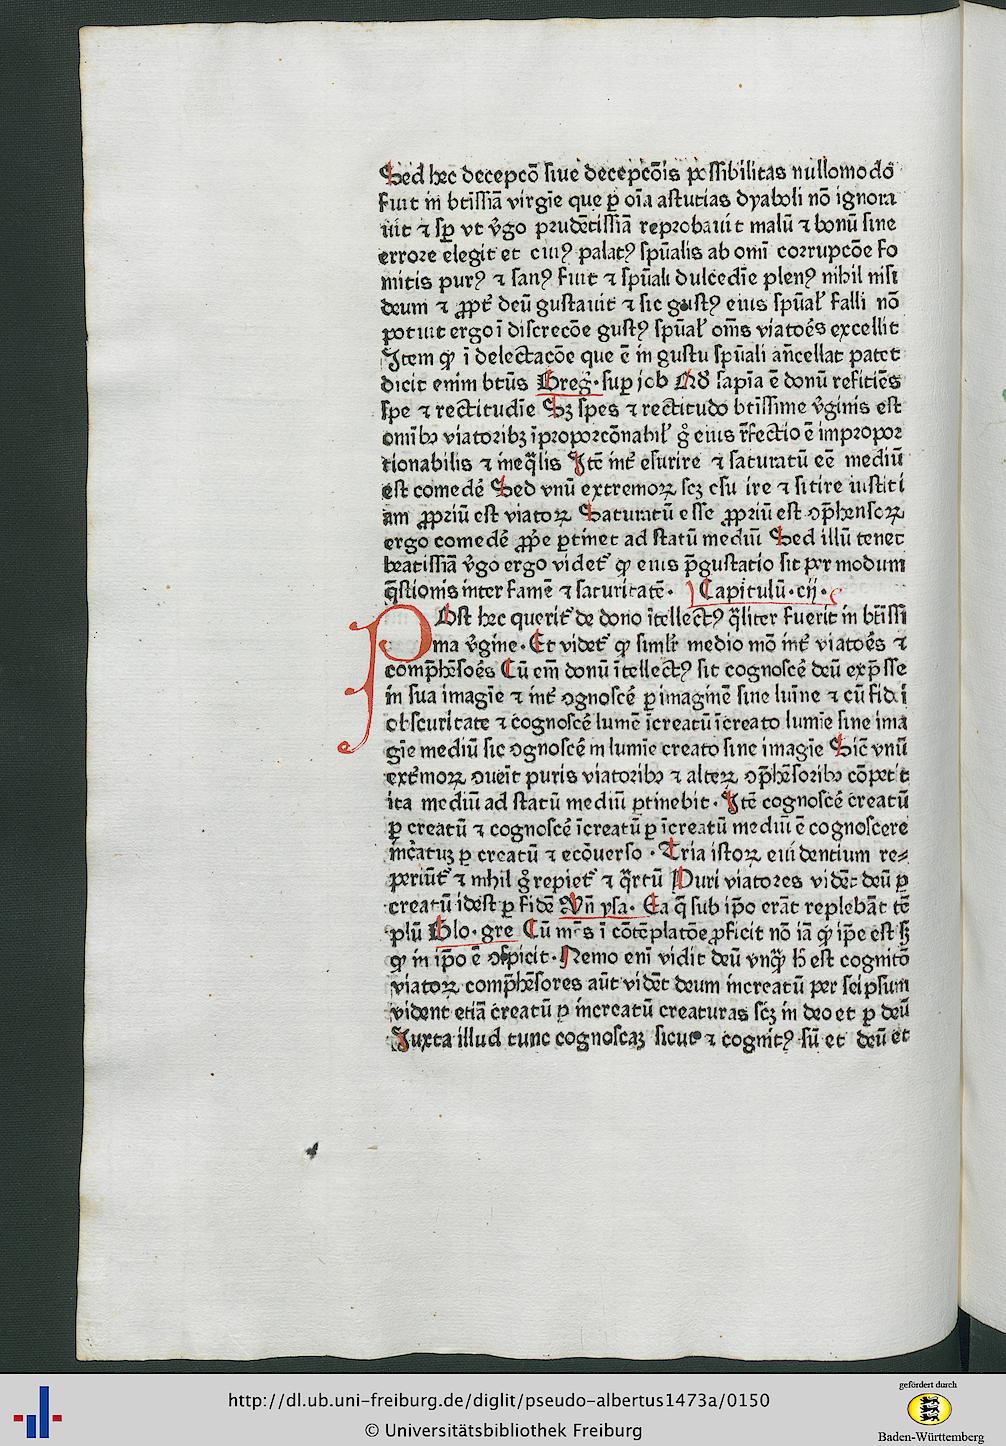 Sed hec decepcō siue decepcōis possibilitas nullomodō
fuit in btissiā virgīe que ꝑ oīa astutias dyaboli nō ignora
uit ⁊ sꝑ vt v̄go prudētissiā reprobauit malū ⁊ bonū sine
errore elegit et cuiꝰ palatꝰ spūalis ab omī corrupcōe fo
mitis purꝰ ⁊ sanꝰ fuit ⁊ spūali dulcedīe plenꝰ nihil nisi
deum ⁊ ꝓpt̄ deū gustauit ⁊ sic gustꝰ eius spūal̄ falli nō
potuit ergo ī discrecōe gustꝰ spūal̄ om̄s viatoēs excellit
Item ꝙ ī delectacōe que ē in gustu spūali añcellat patet
dicit enim btūs Greḡ·suꝑ job Nō sapīa ē donū reficiēs
spe ⁊ rectitudīe Sꝫ spes ⁊ rectitudo btissime v̄ginis est
omībꝫ viatoribꝫ īproporcōnabil̄ g̊ eius r̄fectio ē impropor
tionabilis ⁊ ineq̄lis Itē int̄ esurire ⁊ saturatū eē mediū
est comedē Sed vnū extremoꝝ scꝫ esu ire ⁊ sitire iustiti
am ꝓpriū est viatoꝝ Saturatū esse ꝓpriū est ꝯp̄hensoꝝ
ergo comedē ꝓp̄e ꝑtinet ad statū mediū Sed illū tenet
beatissiā v̄go ergo videt̄ ꝙ eius p̄gustatio sit per modum
q̄stionis inter famē ⁊ saturitatē· Capitulū·cij·
Post hec querit̄ de dono ītellectꝰ q̄liter fuerit in btissi
ma v̄gine· Et videt̄ ꝙ simlr̄ medio mō int̄ viatoēs ⁊
comp̄hēsoēs Cū em̄ donū ītellectꝰ sit cognoscē deū exp̄sse
in sua imagīe ⁊ int̄ ꝯgnoscē ꝑ imaginē sine luīne ⁊ cū fidei
obscuritate ⁊ cognoscē lumē īcreatū īcreato lumīe sine ima
gīe mediū sic ꝯgnoscē in lumīe creato sine imagīe Sic̄ vnū
ext̄moꝝ ꝯueīt puris viatoribꝫ ⁊ alteꝝ ꝯp̄hēsoribꝫ cōpetit
ita mediū ad statū mediū ꝑtinebit· Itē cognoscē creatū
ꝑ creatū ⁊ cognoscē īcreatū ꝑ īcreatū mediū ē cognoscere
incr̄atuꝫ ꝑ creatū ⁊ ecōuerso · Tria istoꝝ euidentium re⸗
periūt̄ ⁊ nihil g̊ repiet̄ ⁊ q̄rtū Puri viatores vidēt deū ꝑ
creatū idest ꝑ fidē Vn̄ ysa· Ea q̄ sub ip̄o erāt replebāt tē
plū Glo·gre Cū mēs ī cōtēplatōe ꝓficit nō iā ꝙ ip̄e est sꝫ
ꝙ in ip̄o ē ꝯspicit· Nemo enī vidit deū vnq̄ꝫ h̄ est cognitō
viatoꝝ comp̄hēsores aūt vidēt deum increatū per seipsum
vident etiā creatū ꝑ increatū creaturas scꝫ in deo et ꝑ deū
Iuxta illud tunc cognoscaꝫ sicut ⁊ cognitꝰ sū et deū et
http://dl.ub.uni-freiburg.de/diglit/pseudo-albertus1473a/0150
© Universitätsbibliothek Freiburg
gefördert durch
Baden-Württemberg